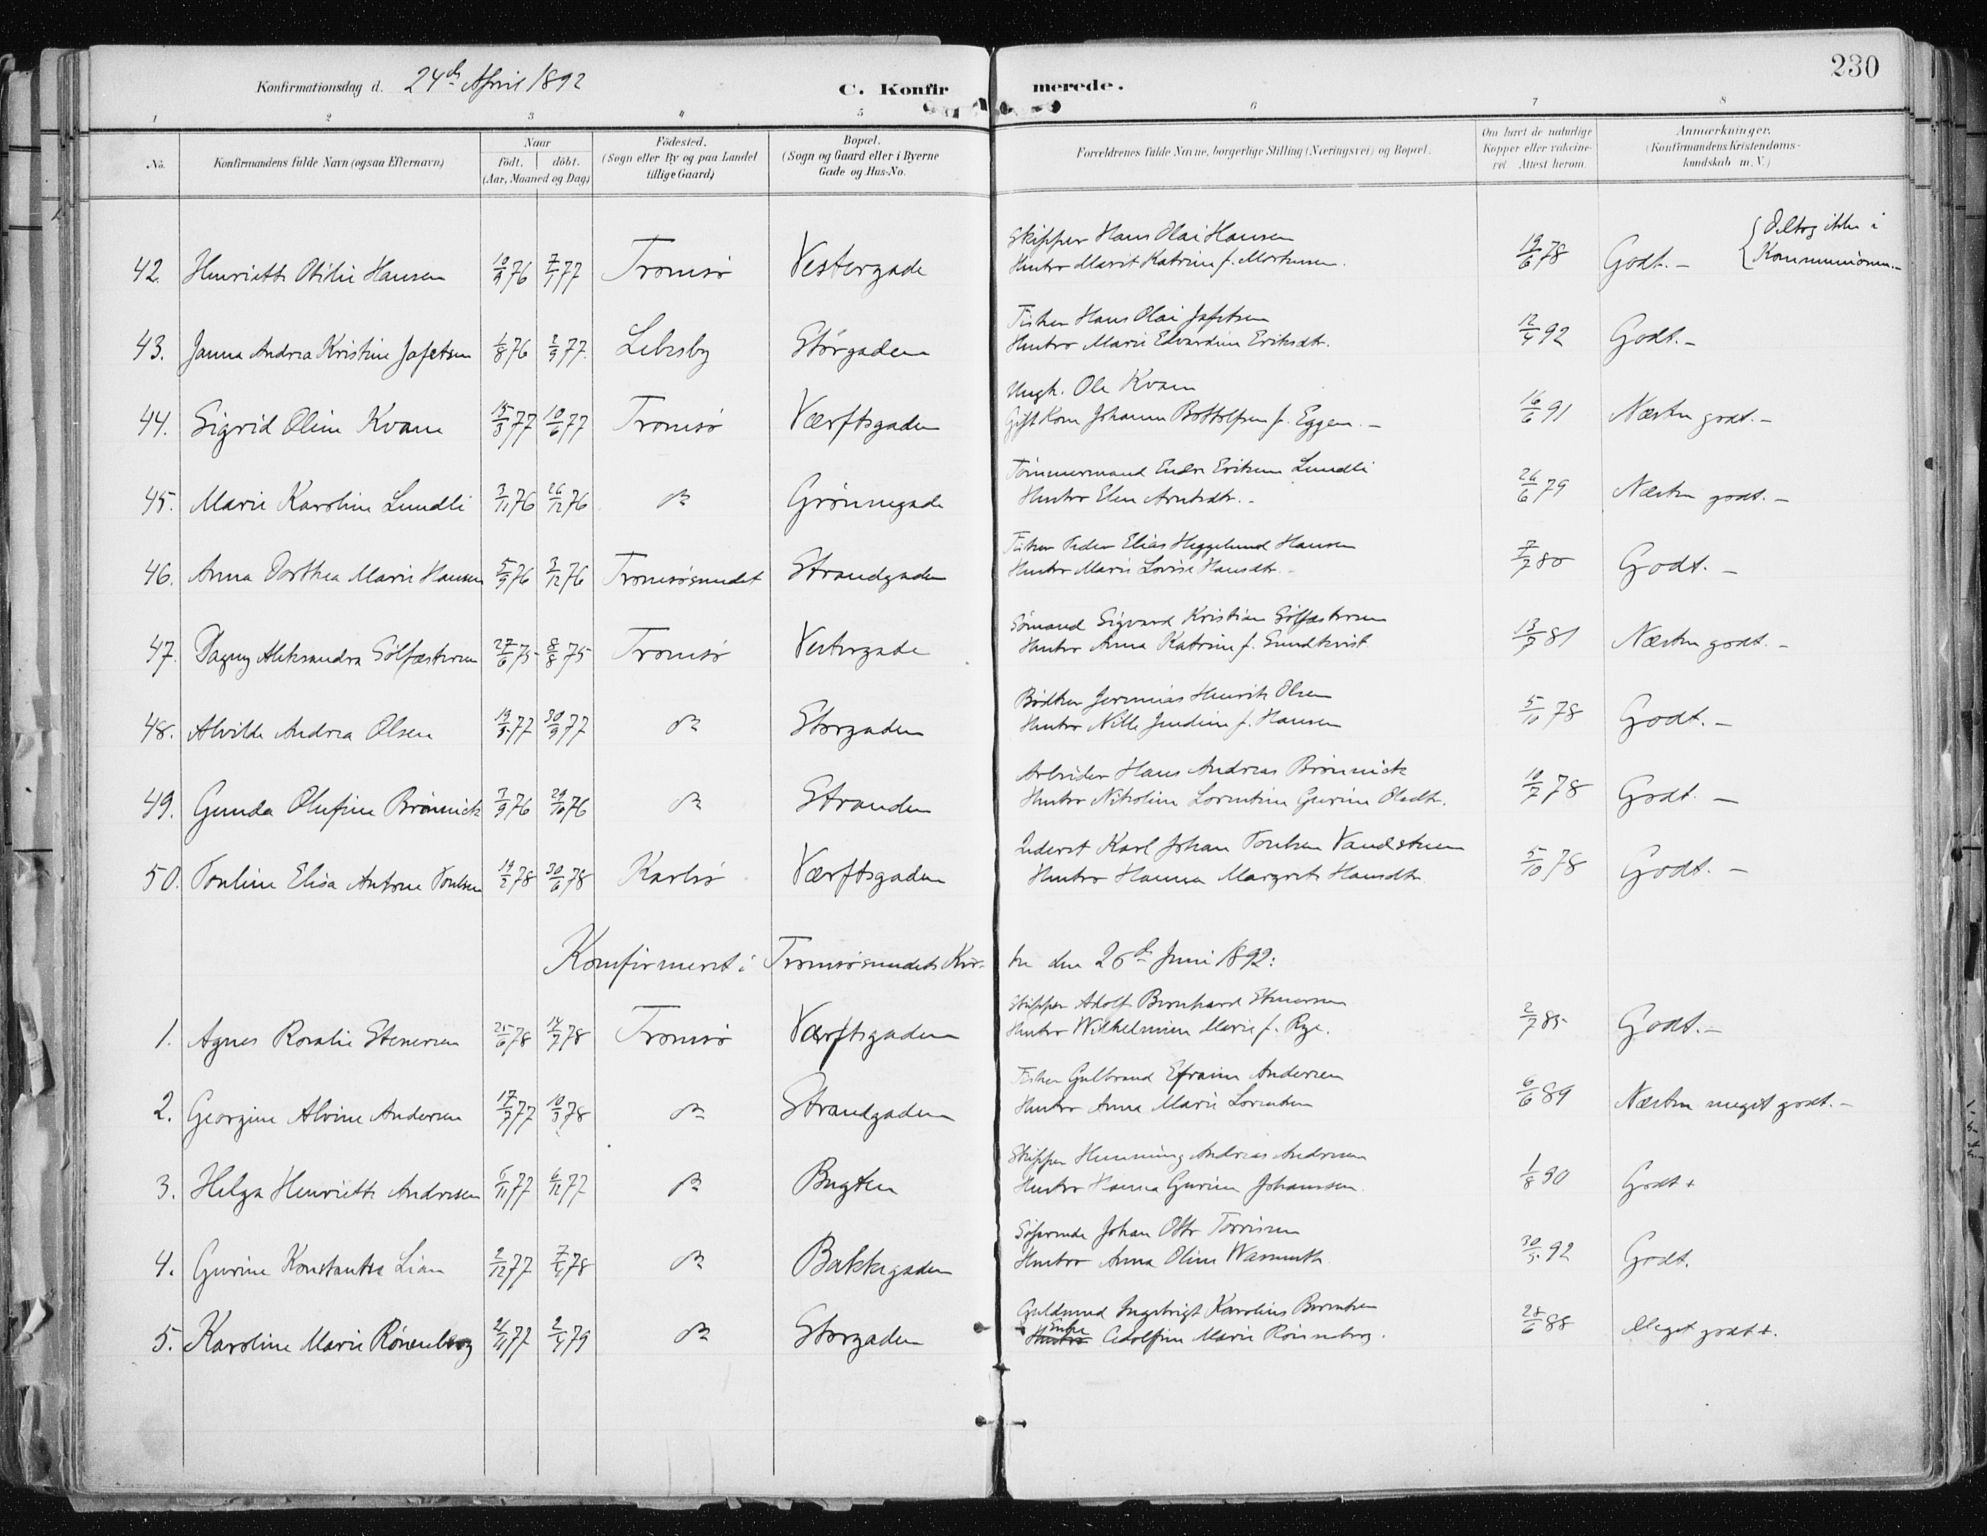 230
Konfirmationsdag d. 24de April 1892
C. Konfirmerede.
1 2 3 4 5 6 7 8
No. Konfirmandens fulde Navn (ogsaa Efternavn) Naar født. døbt. (Aar, Maaned og Dag) Fødested. (Sogn eller By og paa Landet tillige Gaard) Bopæl. (Sogn og Gaard eller i Byerne Gade og Hus-No. Forældrenes fulde Navne, borgerlige Stilling (Næringsvei) og Bopæl. Om havt de naturlige Kopper eller vakcineret. Attest herom. Anmærkninger. (Konfirmandens Kristendomskundskab m. V.)
Skipper Hans Olai Hansen
42. Henriette Otilie Hansen 10/9 76 7/1 77 Tromsø Vestergade Hustro Marit Katrine f. Mortensen. 19/6 78 Godt. - { Deltog ikke i Kommunionen. -
Fisker Hans Olai Jafetsen
43. Janna Andrea Kristine Jafetsen 1/8 76 2/9 77. Lebesby Storgaden Hustro Marie Edvardine Eriksdtr. 12/4 92 Godt. -
Ungk. Ole Kvam
44. Sigrid Oline Kvam 15/3 77 10/6 77 Tromsø Værftsgaden Gift Kone Johanna Bottolfsen f. Eggen. - 16/6 91 Næsten godt. -
Tømmermand Endre Eriksen Lundli
45. Marie Karoline Lundli 3/11 76 26/12 76 do Grønnegade Hustro Elen Arntsdtr. - 26/6 79 Næsten godt. -
Fisker Peder Elias Heggelund Hansen
46. Anna Dorthea Marie Hansen 5/9 76 3/12 76 Tromsøsundet Strandgaden Hustro Marie Lovise Hansdtr. - 7/7 80 Godt. -
Sømand Sigvard Kristian Sølfæstersen
47. Dagny Aleksandra Sølfæstersen 27/6 75 8/8 75 Tromsø Vestergade Hustro Anna Katrine f. Sundkvist 13/7 81 Næsten godt. -
Bødker Jeremias Henrik Olsen
48. Alvilde Andrea Olsen 30/9 77 do Storgaden Hustro Nille Jendine f. Hansen 5/10 78 Godt. -
Arbeider Hans Andreas Brønnick
49. Gunda Olufine Brønnick 7/9 76 29/10 76 do Stranden Hustro Nikoline Lorentine Gurine Olsdtr. 10/7 78 Godt. -
Inderst Karl Johan Poulsen Vandstuen
50. Pouline Elisa Antone Poulsen 19/2 78 30/6 78 Karlsø Værftsgaden Hustro Hanna Margrete Hansdtr 5/10 78 Godt. -
Konfirmeret i Tromsøsundets Kirke den 26de Juni 1892:
Skipper Adolf Bernhard Stenersen
1. Agnes Rosalie Stenersen 25/6 78 14/7 78 Tromsø Værftsgaden Hustro Wilhelmine Marie f. Rye. 2/7 85 Godt. -
Fisker Gulbrand Efraim Andersen
2. Georgine Alvine Andersen 17/9 77 10/3 78 do Strandgaden Hustro Anna Marie Lorentsen 6/6 89 Næsten meget godt. -
Skipper Henning Andreas Andresen
3. Helga Henriette Andresen 5/11 77 6/12 77 do Bugten Hustro Hanna Gurine Johannsen. 1/8 90 Godt +
Johan Otto
4. Gurine Konstantse Lian 2/12 77 7/4 78 do Bakkegaden Hustro Anna Oline Wasmuth 30/5 92 Godt.
Guldsmed Ingebrigt Karolius Berntsen
5. Karoline Marie Rønneberg 21/11 77 2/4 79 do Storgaden Hustro Enke Adolfine Marie Rønneberg. 28/6 88 Meget godt +.